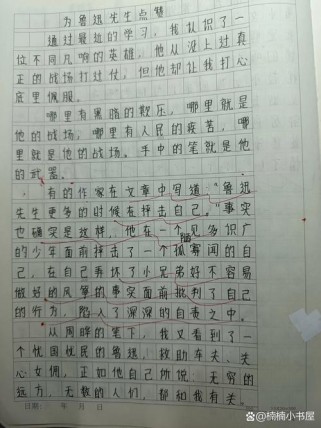 为鲁迅先生点赞
通过最近的学习，我认识了一
位不同凡响的英雄。他从没上过真
正的战场打过仗，但他却让我打心
底里佩服。
哪里有黑暗的欺压，哪里就是
他的战场；哪里有人民的疾苦，哪
里就是他的战场。手中的笔就是他
的武器。
有的作家在文章中写道："鲁迅
先生更多的时候在抨击自己。"事实
也确实是这样，他在一个见多识广
的少年面前抨击了一个孤陋寡闻的自
己，在自己弄坏了小兄弟好不容易
做好的风筝的事实面前批判了自己
的行为，陷入了深深的自责之中。
从周晔的笔下，我又看到了一
个忧国忧民的鲁迅，救助车夫、关
心女佣，正如他自己所说：无穷的
远方，无数的人们，都和我有关。
日期： 年 月 日
@楠楠小书屋